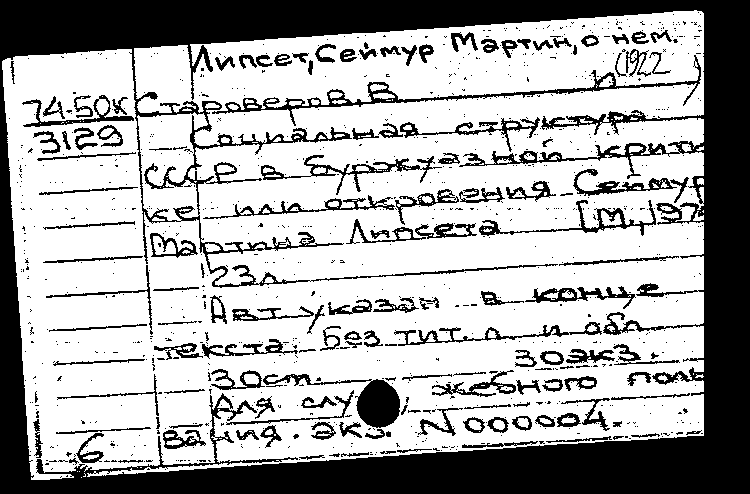 Липсет, Сеймур Мартин, о нем.
(1922 )
74-50К Староверов, В.
3129 Социальная структура
СССР в буржуазной крити
ке или откровения Сеймур
Мартина Липсета. [М., 197
23л.
Авт указан в конце
текста. Без тит. л. и обл
30ст. 30экз.
Для слу жебного поль
вания. экз. N000004.
6